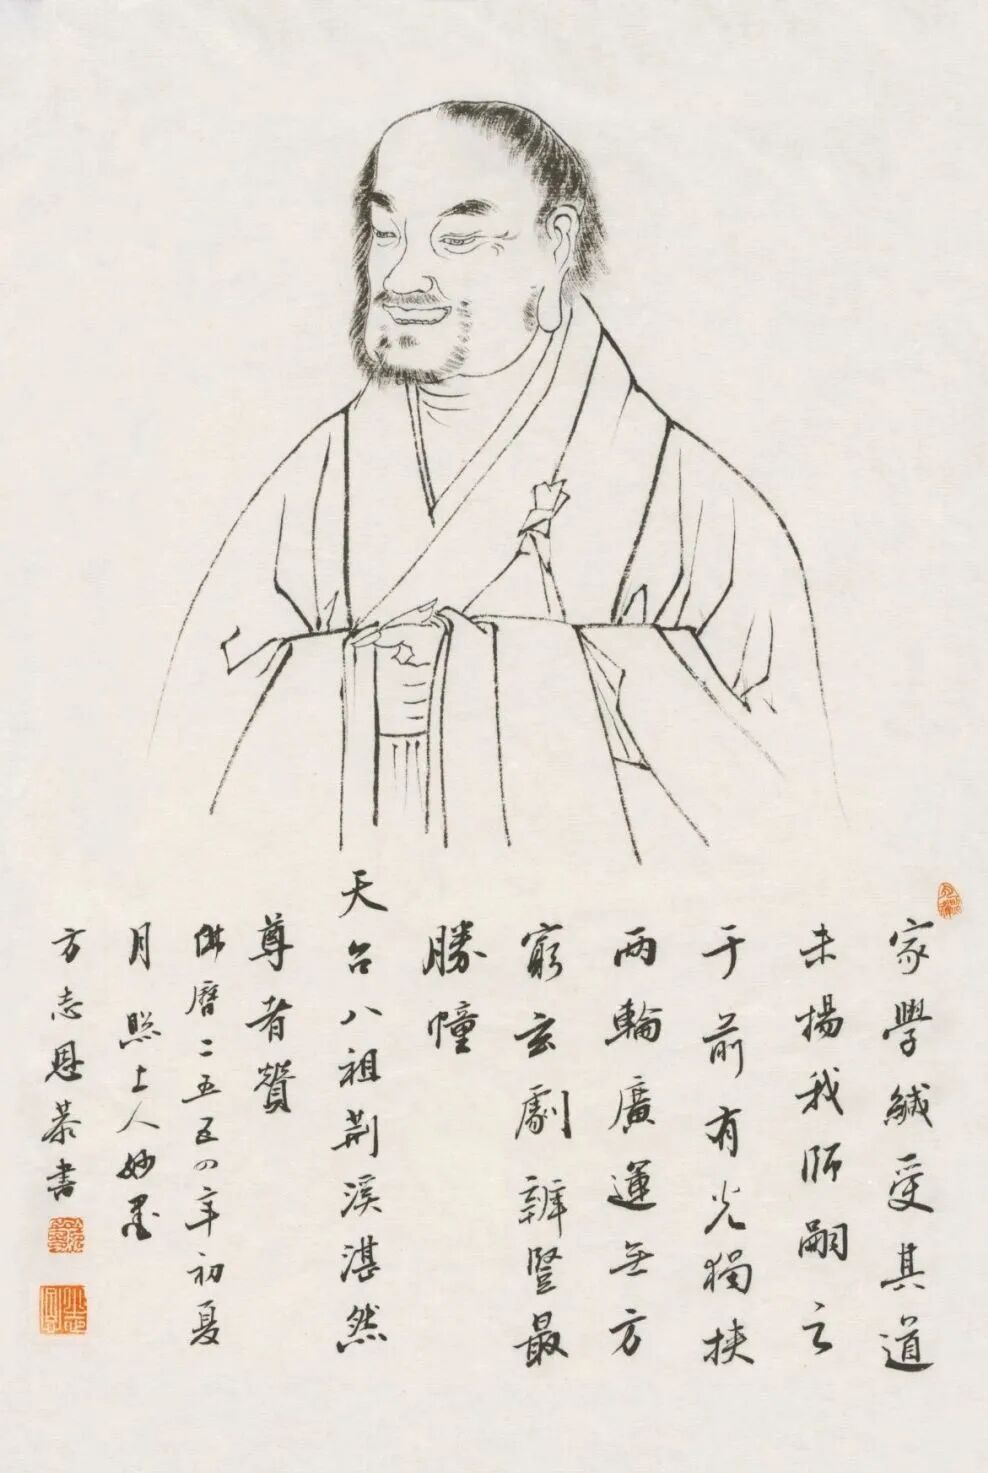 家學緘受其道
未揚我師嗣之
于前有光獨挾
兩輪廣運無方
窮玄劇辨豎最
勝幢
天台八祖荆溪湛然
尊者贊
佛曆二五五〇年初夏
月照上人妙墨
方志恩恭書